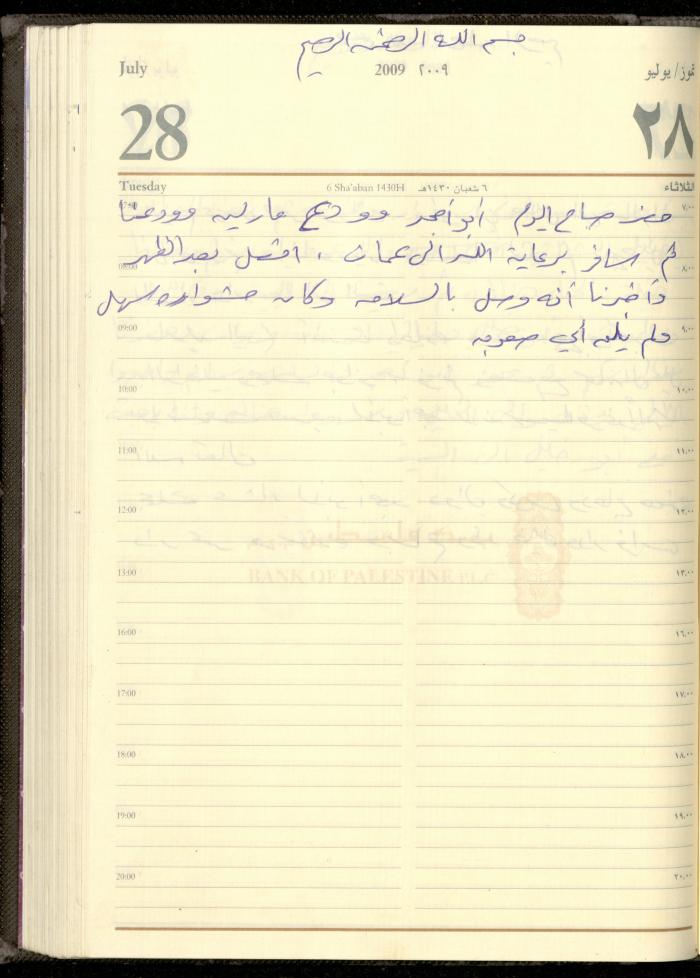 بسم الله الرحمن الرحيم
July 2009 ٢٠٠٩ تموز/ يوليو
28 ٢٨
Tuesday 6 Sha'aban 1430H ٦ شعبان ١٤٣٠هـ الثلاثاء
صباح اليوم أبو أمجد وودع مارلين وودعنا
ثم سافر برعاية الله الى عمان ، اتصل بعد الظهر
وأخبرنا أنه وصل بالسلامه وكان مشواره سهل
ولم يلق أي صعوبه
07:00 ٧:٠٠
08:00 ٨:٠٠
09:00 ٩:٠٠
10:00 ١٠:٠٠
11:00 ١١:٠٠
12:00 ١٢:٠٠
13:00 ١٣:٠٠
16:00 ١٦:٠٠
17:00 ١٧:٠٠
18:00 ١٨:٠٠
19:00 ١٩:٠٠
20:00 ٢٠:٠٠
BANK OF PALESTINE PLC